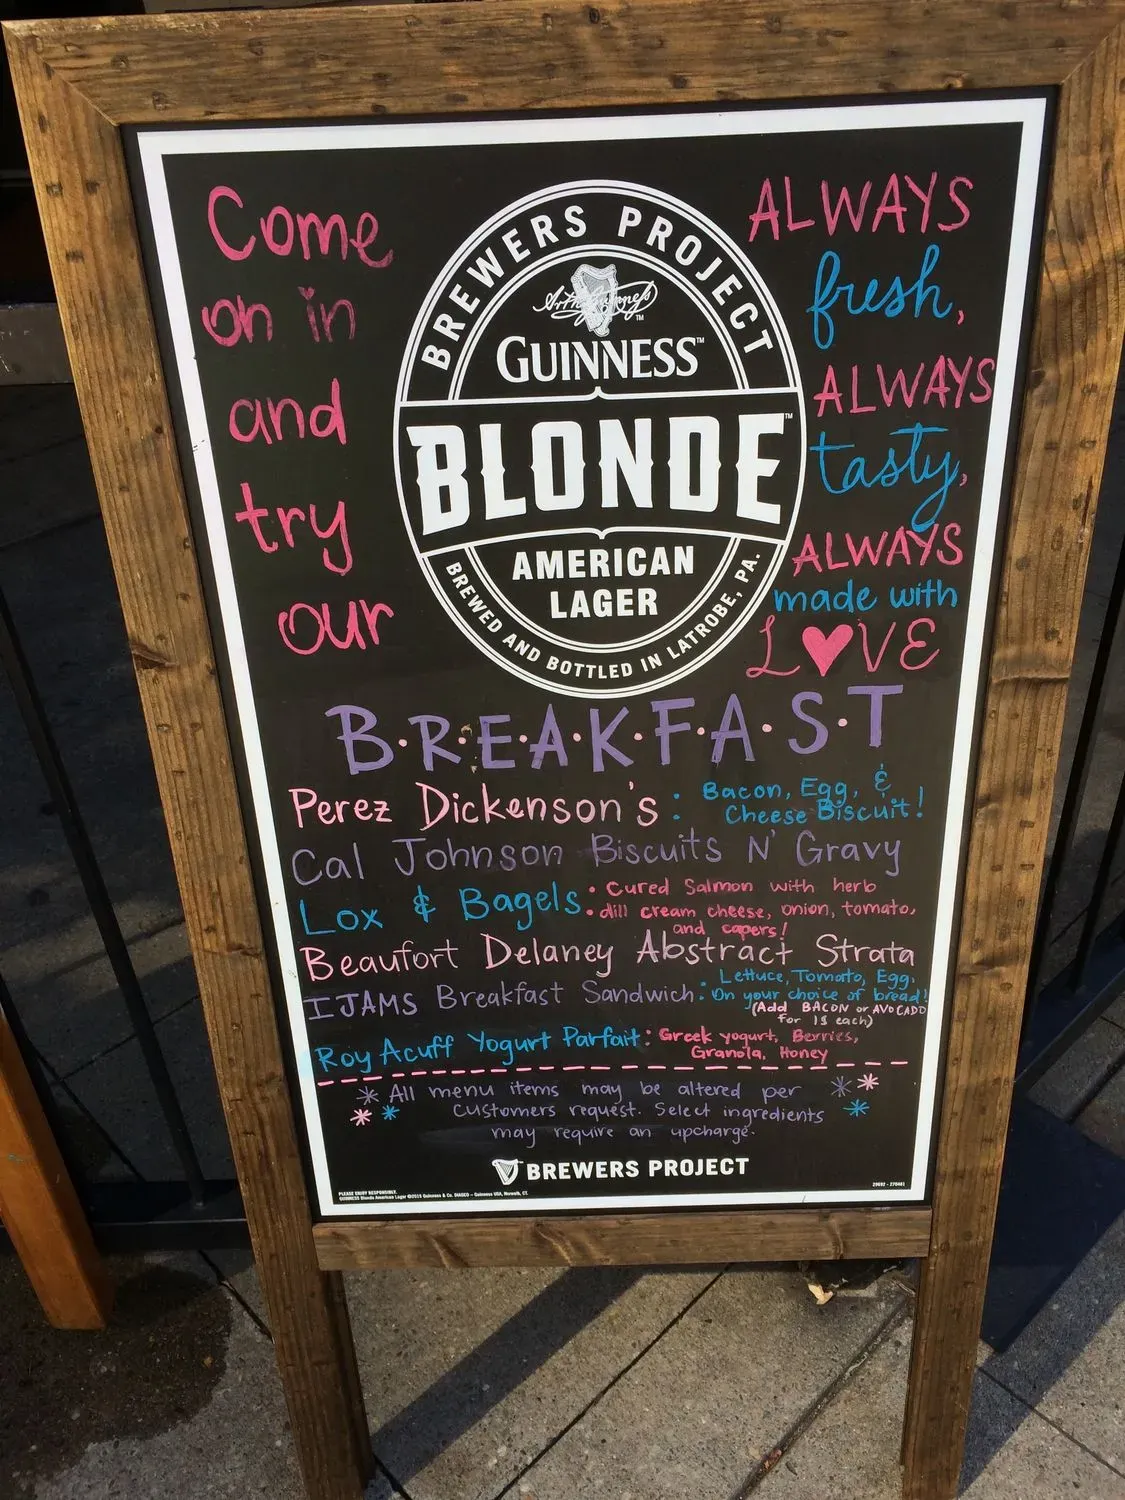 Come
on in
and
try
our
BREWERS PROJECT
Arthur Guinness
TM
GUINNESS™
BLONDE™
AMERICAN
LAGER
BREWED AND BOTTLED IN LATROBE, PA.
ALWAYS
fresh,
ALWAYS
tasty,
ALWAYS
made with
L♥VE
B·R·E·A·K·F·A·S·T
Perez Dickenson's: Bacon, Egg, &
Cheese Biscuit!
Cal Johnson Biscuits N' Gravy
Lox & Bagels • Cured Salmon with herb
• dill cream cheese, onion, tomato,
and capers!
Beaufort Delaney Abstract Strata
IJAMS Breakfast Sandwich: Lettuce, Tomato, Egg,
On your choice of bread!
(Add BACON or AVOCADO
for 1$ each)
Roy Acuff Yogurt Parfait: Greek yogurt, Berries,
Granola, Honey
* All menu items may be altered per
customers request. Select ingredients
may require an upcharge.
BREWERS PROJECT
PLEASE ENJOY RESPONSIBLY.
GUINNESS Blonde American Lager ©2015 Guinness & Co. DIAGEO – Guinness USA, Norwalk, CT.